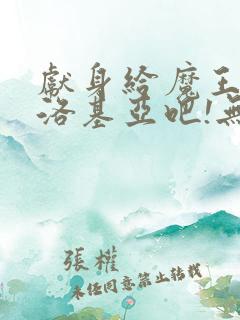 獻身給魔王
洛基亞吧!無
張權
未經同意禁止轉載